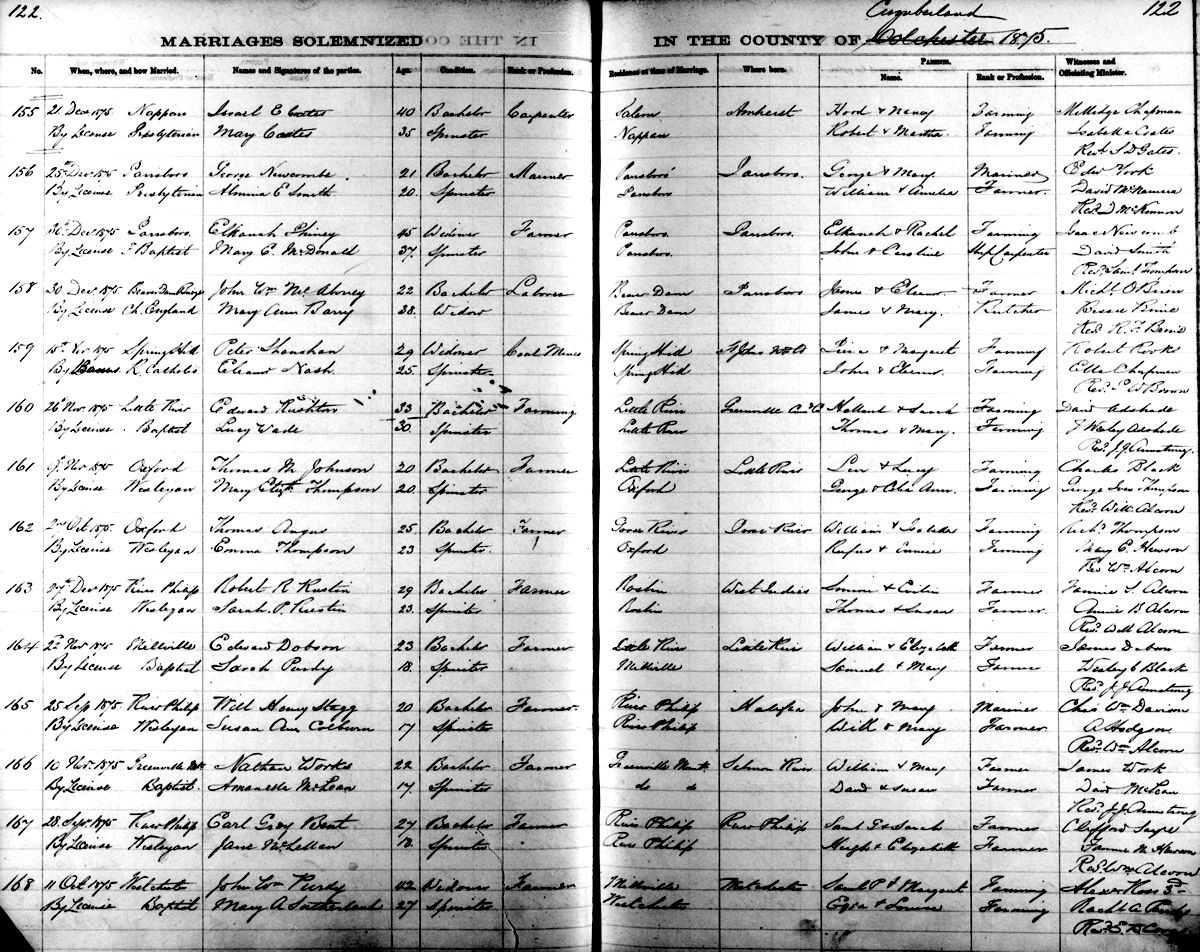 122. Cumberland 122
MARRIAGES SOLEMNIZED IN THE COUNTY OF Colchester 1875.
No. When, where, and how Married. Names and Signatures of the parties. Age. Condition. Rank or Profession. Residence at time of Marriage. Where born. PARENTS. Name. Rank or Profession. Witnesses and Officiating Minister.
155 21 Dec 1875 Nappan Israel E Coates 40 Bachelor Carpenter Salem Amherst Hood & Nancy Farming Chapman
By License Presbyterian Mary Coates 35 Spinster Nappan Robert & Martha Farming Isabella Coates
Revd Gates.
156 25th Dec 1875 Parrsboro George Newcombe 21 Bachelor Mariner Parrsboro Parrsboro. George & Mary Mariner York
By License Presbyterian E Smith 20. Spinster Parrsboro William & Amelia Farmer. David McNamara
Revd D McKinnon
157 30th Dec 1875 Parsboro. Elkanah 45 Widower Farmer Parrsboro. Parsboro. Elkanah & Rachel Farming Isaac Newcomb
By License F. Baptist Mary E. McDonald 37. Spinster Parrsboro. John & Caroline Ship Carpenter David Smith
Revd Saml
158 30 Dec 1875 Beaver Dam John Wm 22 Bachelor Laborer Beaver Dam Parrsboro James & Eleanor Farmer Michl O'Brien
By License Ch. England Mary Ann Barry 38. Widow Beaver Dam James & Mary. Butcher
Revd R. F.
159 15th Nov 1875 Spring Hill Peter Shanahan 29 Widower Coal Miner Spring Hill St Johns & Margaret Farming Robert
By Banns R. Catholic Eleanor Nash 25 Spinster Spring Hill John & Eleanor. Farming Chapman
Revd
160 26 Nov 1875 Little River Edward Rushton 33 Bachelor Farming Little River Greenville & Sarah Farming David
By License Baptist Lucy Wade 30. Spinster Little River Thomas & Mary. Farming J Wesley
Revd J. J. Armstrong.
161 9 Nov 1875 Oxford Thomas M Johnson 20 Bachelor Farmer Little River Little River Levi & Lucy Farming Charles Black
By License Wesleyan Mary Elizth Thompson 20. Spinster Oxford George & Celia Ann. Farming George Thompson
Revd Will Alcorn
162 2nd Oct 1875 Oxford Thomas Angus 25. Bachelor Farmer River River William & Isabella Farming Richd Thompson
By License Wesleyan Emma Thompson 23 Spinster. Oxford Rufus & Farming Mary E. Hewson
Rev Wm Alcorn
163 27th Dec 1875 River Philip Robert R Rustin 29 Bachelor Farmer Roslin West Indies Simon & Farmer Fannie S. Alcorn
By License Wesleyan Sarah P. Rustin 23. Spinster Roslin Thomas & Susan Farmer. Annie B Alcorn
Revd Will Alcorn
164 22 Nov 1875 Millville Edward Dobson 23 Bachelor Farmer Little River Little River William & Elizabeth Farmer James
By License Baptist Sarah Purdy 18. Spinster Millville Samuel & Mary Farmer Wesley C Black
Revd J. J. Armstrong
165 25 Sep 1875 River Philip Will Henry Stagg 20 Bachelor Farmer. River Philip Halifax John & Mary Mariner Chas Wm Davison
By License Wesleyan Susan Ann Colburn 17 Spinster River Philip Will & Mary Farmer A Hodgson
Revd Wm Alcorn
166 10 Nov. 1875 Greenville Nathan Works 22 Bachelor Farmer Greenville Salmon River William & Mary Farmer James Work
By License Baptist. McLean 17. Spinster do do David & Susan Farmer David McLean
Revd J. J. Armstrong
167 28. Sept 1875 River Philip Earl Grey Bent 27 Bachelor Farmer River Philip River Philip Saml & Sarah Farmer Clifford
By License Wesleyan Jane McLellan 18. Spinster River Philip Hugh & Elizabeth Farmer Fannie M Hewson
Revd Wm Alcorn
168 11 Oct 1875 Westchester John Wm Purdy 42 Widower Farmer Millville Westchester Saml P & Margaret Farming
By License Baptist Mary A Sutherland 27 Spinster Westchester & Louisa Farming Purdy
Revd